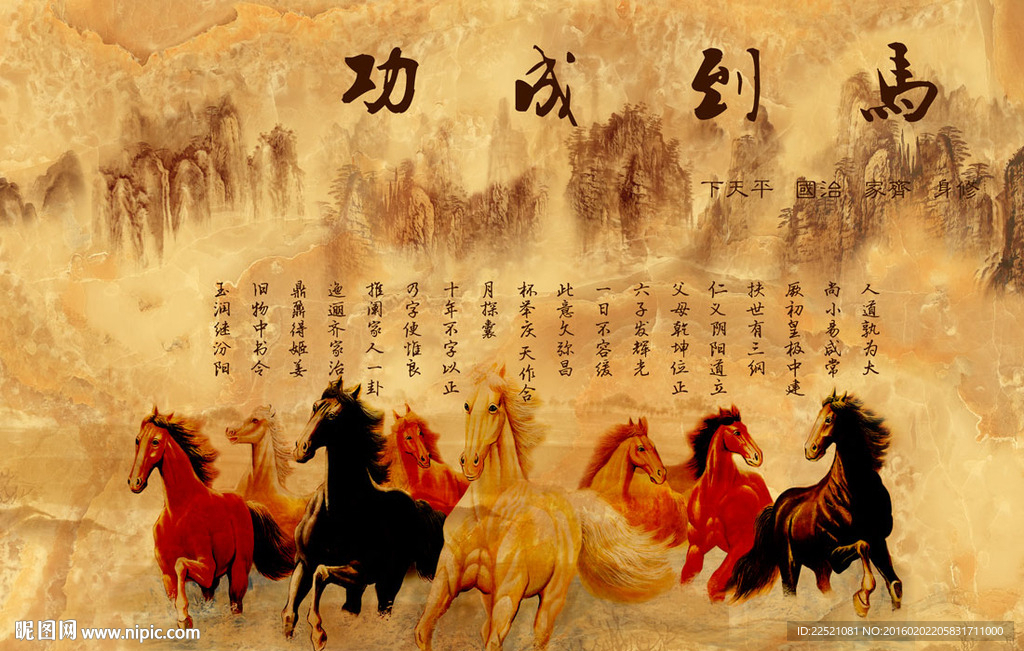 馬到成功
修身 齊家 治國 平天下
人道孰为大
尚小易咸常
厥初皇极中建
扶世有三纲
仁义阴阳道立
父母乾坤位正
六子发辉光
一日不容缓
此意久弥昌
杯举庆 天作合
月探囊
十年不字以正
乃字便惟良
推阐家人一卦
迤逦齐家治
鼎鼐得姬姜
旧物中书令
玉润继汾阳
昵图网 www.nipic.com
ID:22521081 NO:20160202205831711000